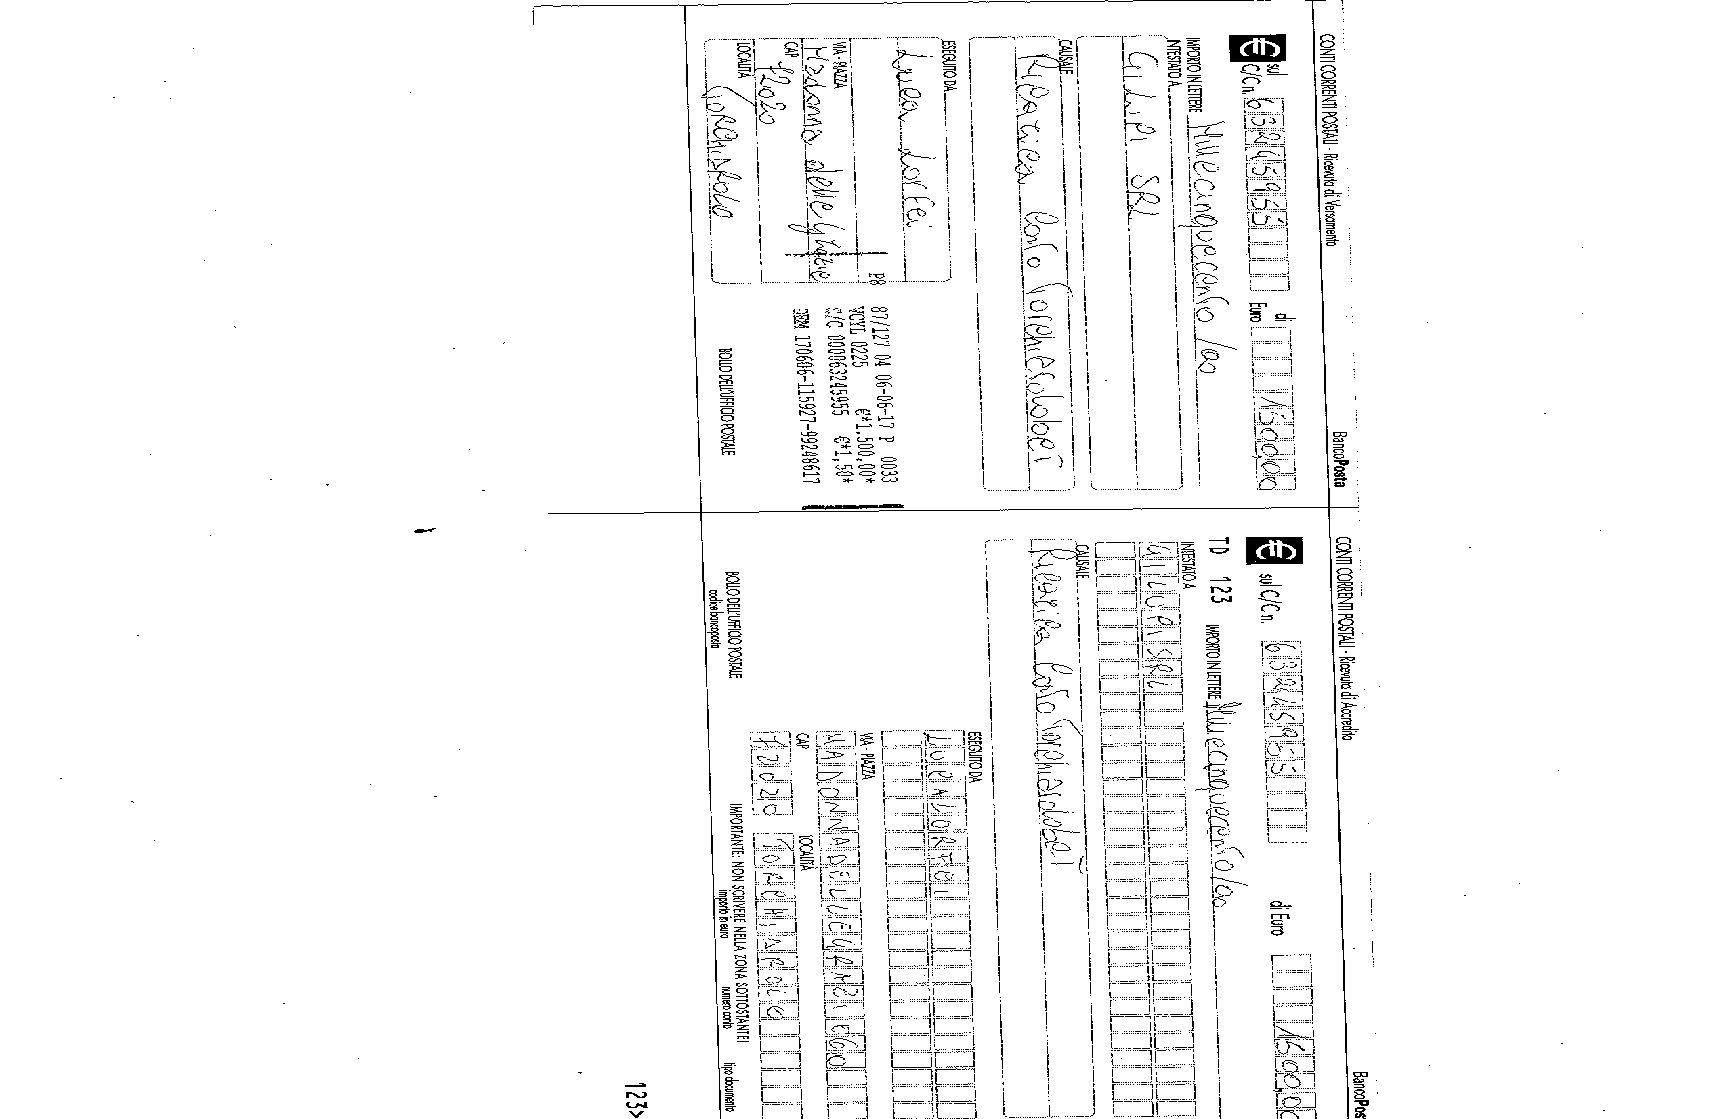 CONTI CORRENTI POSTALI - Ricevuta di Versamento
BancoPosta
€ sul C/C n. 63245955 di Euro 1500,00
IMPORTO IN LETTERE Millecinquecento/00
INTESTATO A
GI.LU.PI SRL
CAUSALE
Ricarica Conto
ESEGUITO DA
Luca Lorfei
VIA - PIAZZA
Madonna delle Grazie
CAP
72020
LOCALITÀ
TORCHIAROLO
P8
87/127 04 06-06-17 P 0033
VCYL 0225 €*1.500,00*
C/C 000063245955 €*1,50*
170606-115927-99248617
BOLLO DELL'UFFICIO POSTALE
CONTI CORRENTI POSTALI - Ricevuta di Accredito
BancoPos
€ sul C/C n. 63245955 di Euro 1500,00
TD 123 IMPORTO IN LETTERE Millecinquecento/00
INTESTATO A
GI.LU.PI SRL
CAUSALE
Ricarica Conto
ESEGUITO DA
LUCA LORFEI
VIA - PIAZZA
MADONNA DELLE GRAZIE 60
CAP LOCALITÀ
72020 TORCHIAROLO
BOLLO DELL'UFFICIO POSTALE
codice bancoposta
IMPORTANTE: NON SCRIVERE NELLA ZONA SOTTOSTANTE!
importo in euro numero conto tipo documento
123>